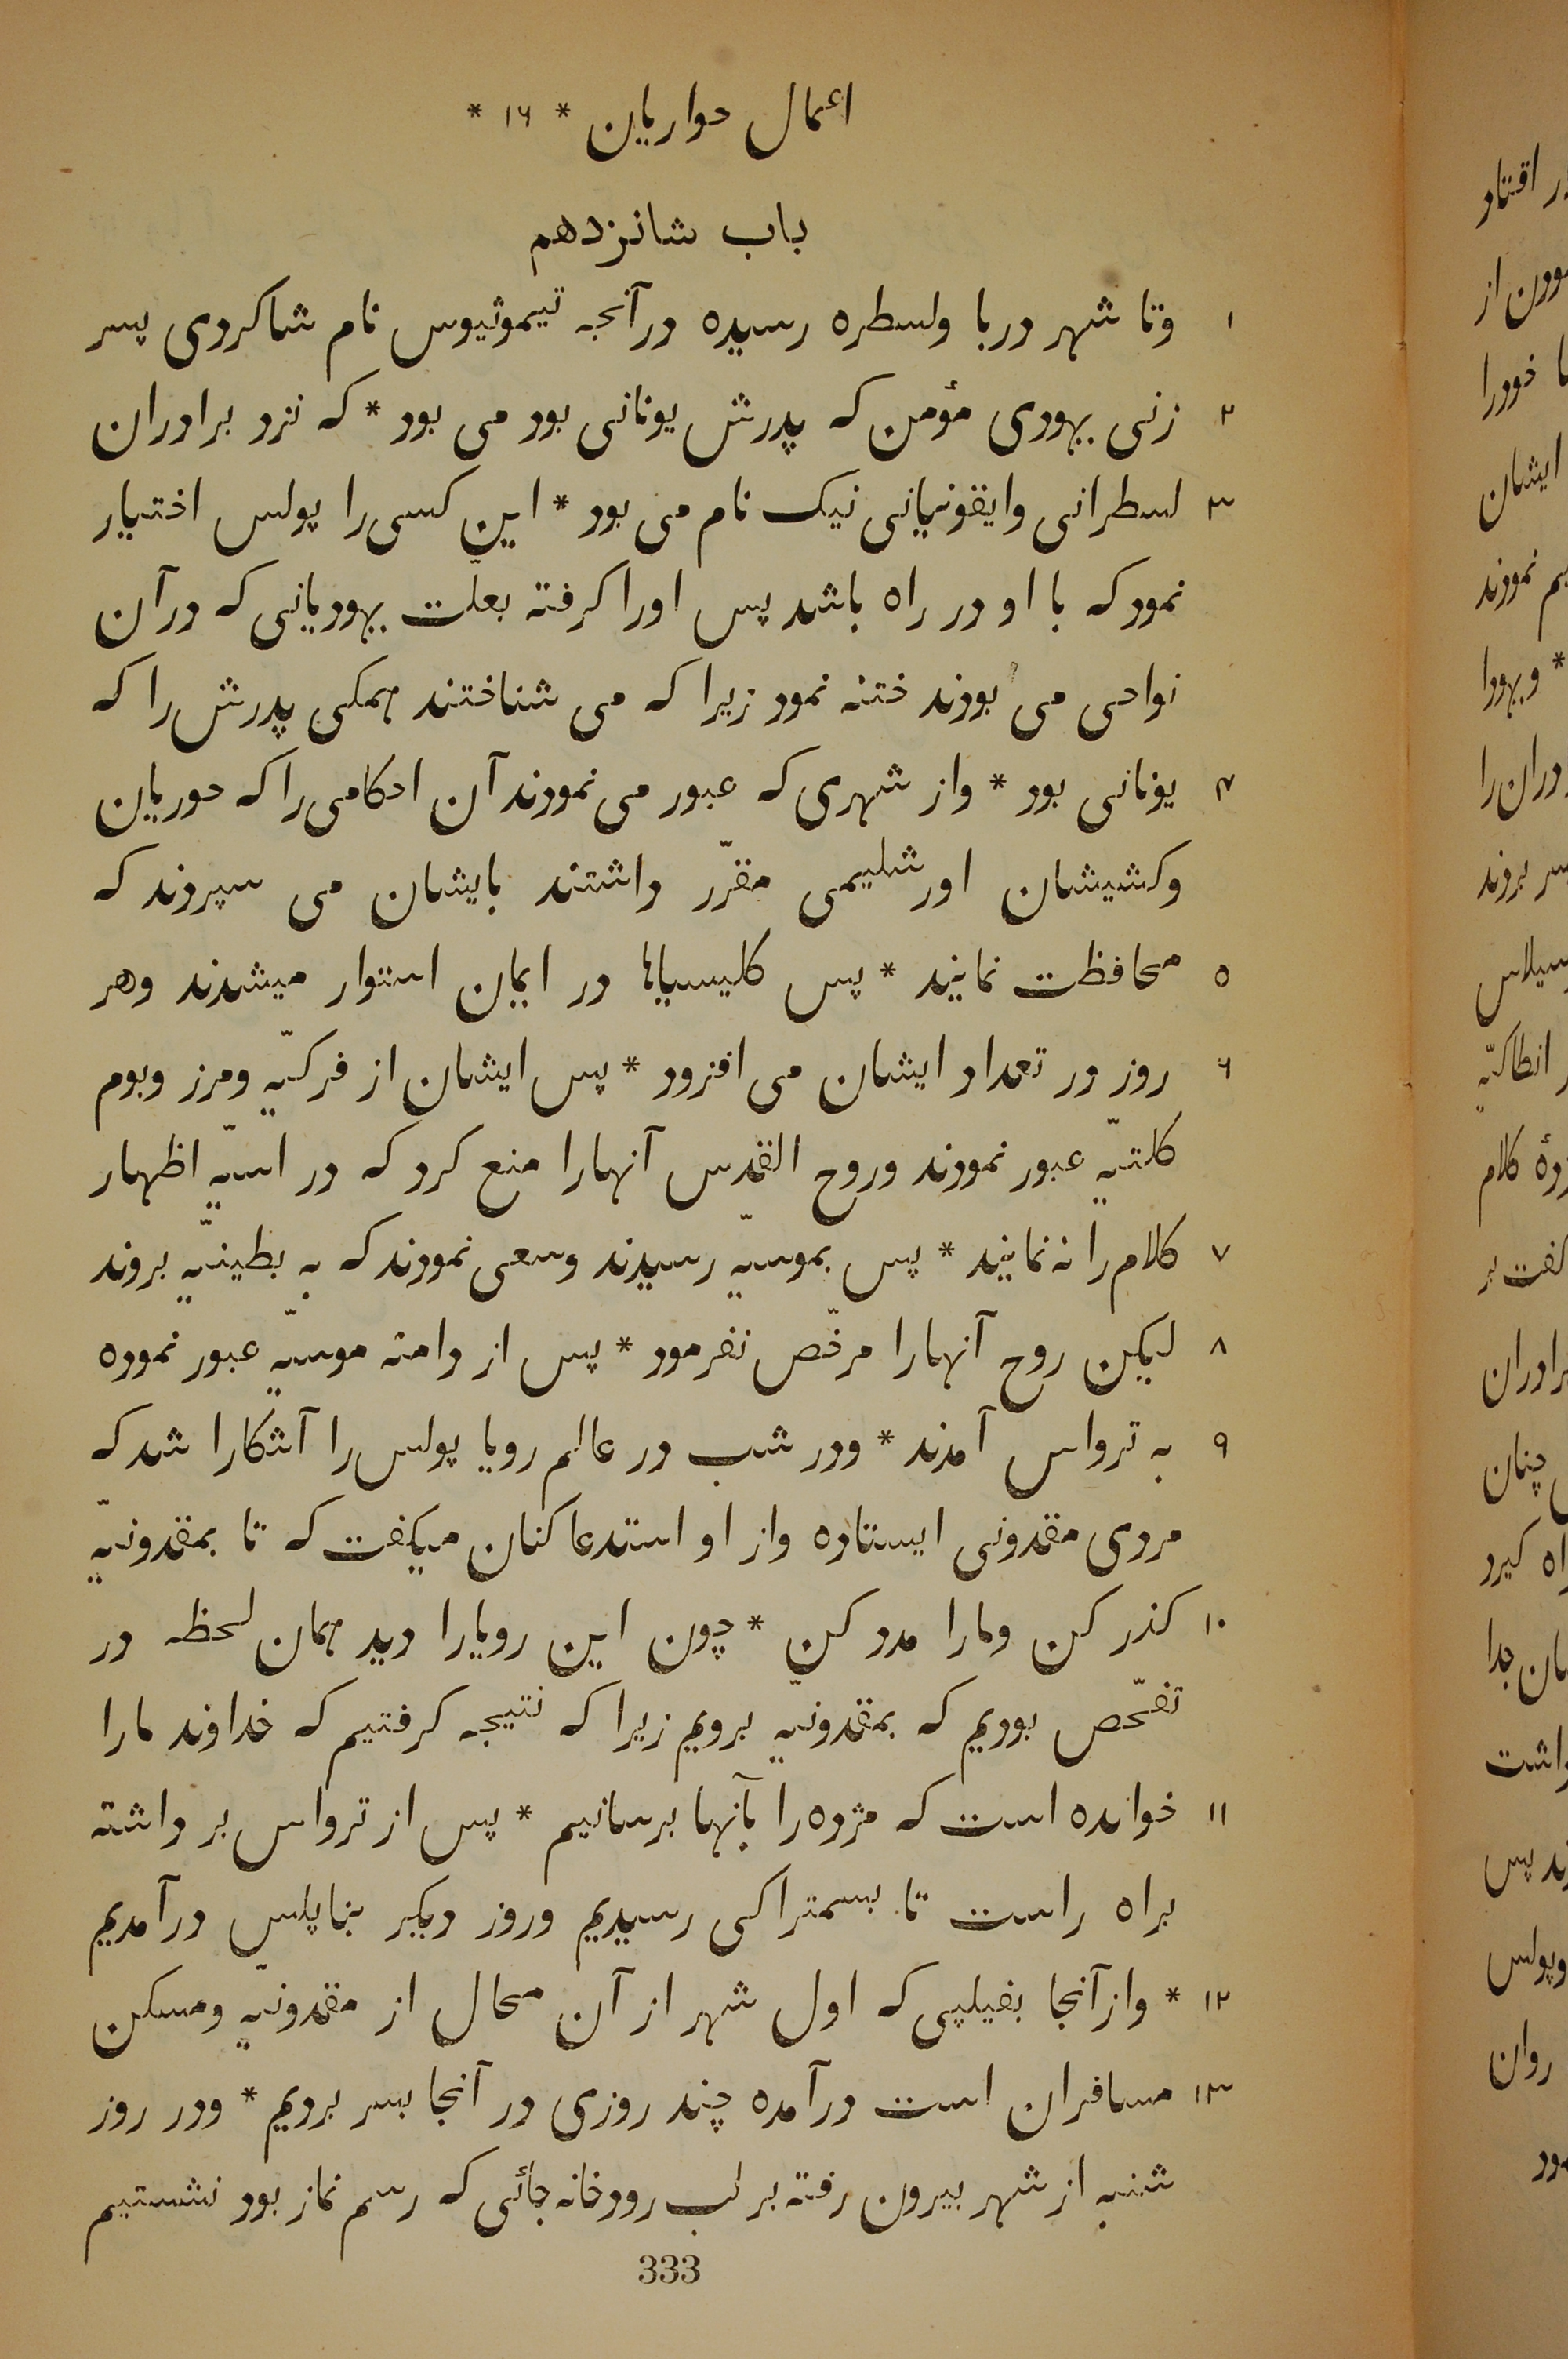 اعمال حواریان * ۱۶ *
باب شانزدهم
۱ وتا شهر دربا ولسطره رسیده درآنجه تیموثیوس نام شاکردی پسر
۲ زنی یهودی مؤمن که پدرش یونانی بود می بود * که نزد برادران
۳ لسطرانی وایقونیانی نیک نام می بود * این کسی را پولس اختیار
نمود که با او در راه باشد پس اورا کرفته بعلّت یهودیانی که درآن
نواحی می بودند ختنه نمود زیرا که می شناختند همکی پدرش را که
۴ یونانی بود * واز شهری که عبور می نمودند آن احکامی را که حوریان
وکشیشان اورشلیمی مقرّر داشتند بایشان می سپردند که
۵ محافظت نمایند * پس کلیسیاها در ایمان استوار میشدند وهر
۶ روز در تعداد ایشان می افزود * پس ایشان از فرکیّه ومرز وبوم
کلتیّه عبور نمودند وروح القدس آنهارا منع کرد که در اسیّه اظهار
۷ کلام را نه نمایند * پس بموسیّه رسیدند وسعی نمودند که به بطینیّه بروند
۸ لیکن روح آنهارا مرخّص نفرمود * پس از دامنه موسیّه عبور نموده
۹ به ترواس آمدند * ودر شب در عالم رویا پولس را آشکارا شد که
مردی مقدونی ایستاده واز او استدعا کنان میکفت که تا بمقدونیّه
۱۰ کذر کن ومارا مدد کن * چون این رویارا دید همان لحظه در
تفحّص بودیم که بمقدونیّه برویم زیرا که نتیجه کرفتیم که خداوند مارا
۱۱ خوانده است که مژده را بآنها برسانیم * پس از ترواس بر داشته
براه راست تا بسمتراکی رسیدیم وروز دیکر بناپلس درآمدیم
۱۲ * واز آنجا بفیلپی که اول شهر از آن محال از مقدونیّه ومسکن
۱۳ مسافران است درآمده چند روزی در آنجا بسر بردیم * ودر روز
شنبه از شهر بیرون رفته بر لب رودخانه جائی که رسم نماز بود نشستیم
333